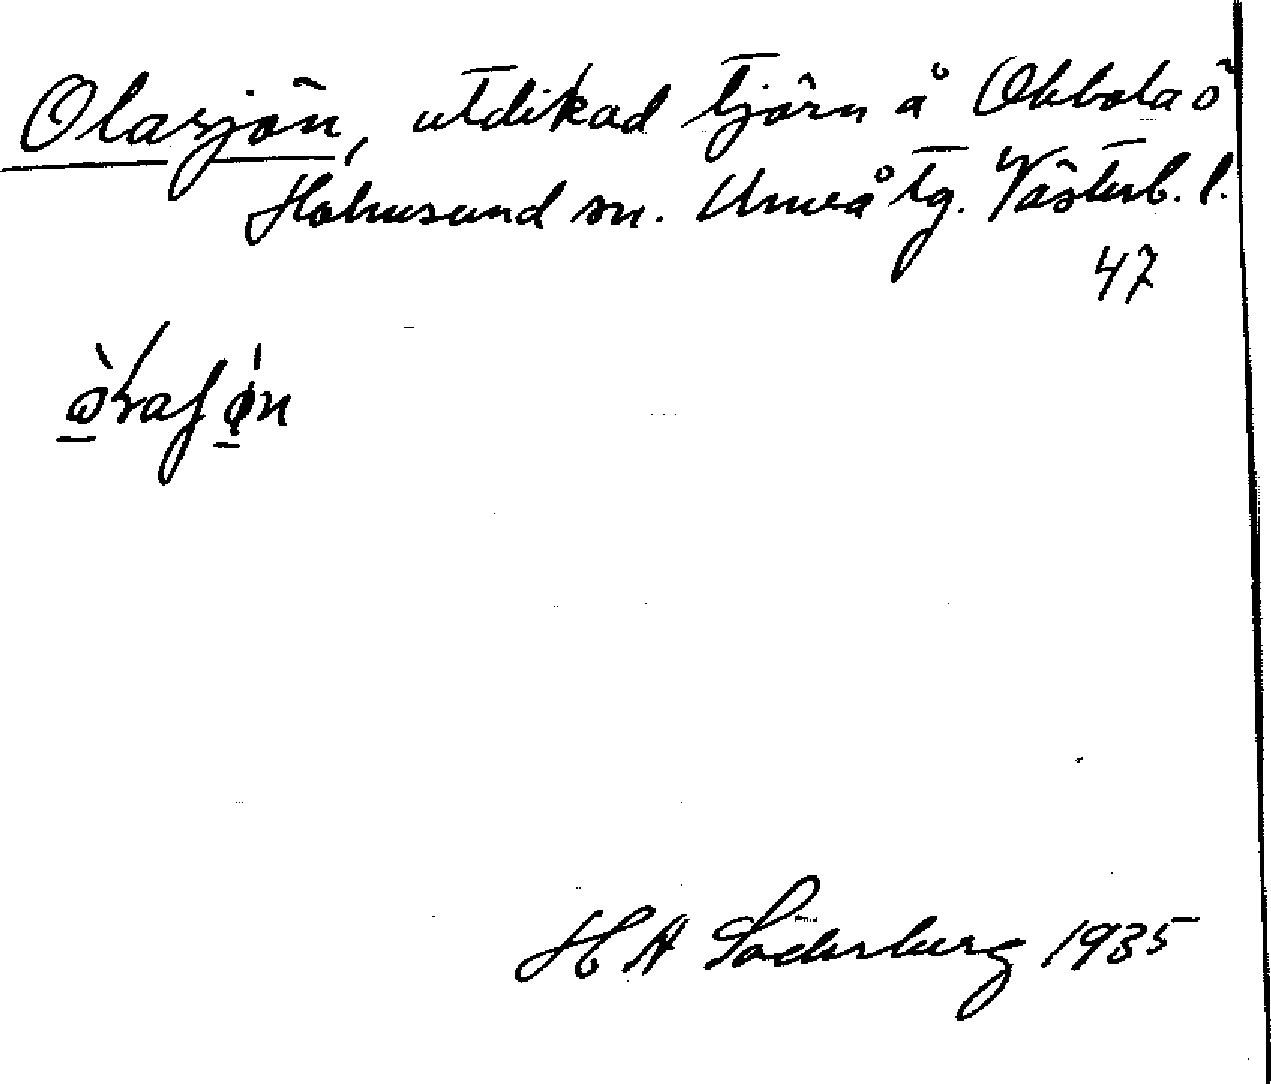 Olasjön, utdikad tjärn å Obbolaö
Holmsund sn. Umeå tg. Västerb. l.
47
H A Söderberg 1935